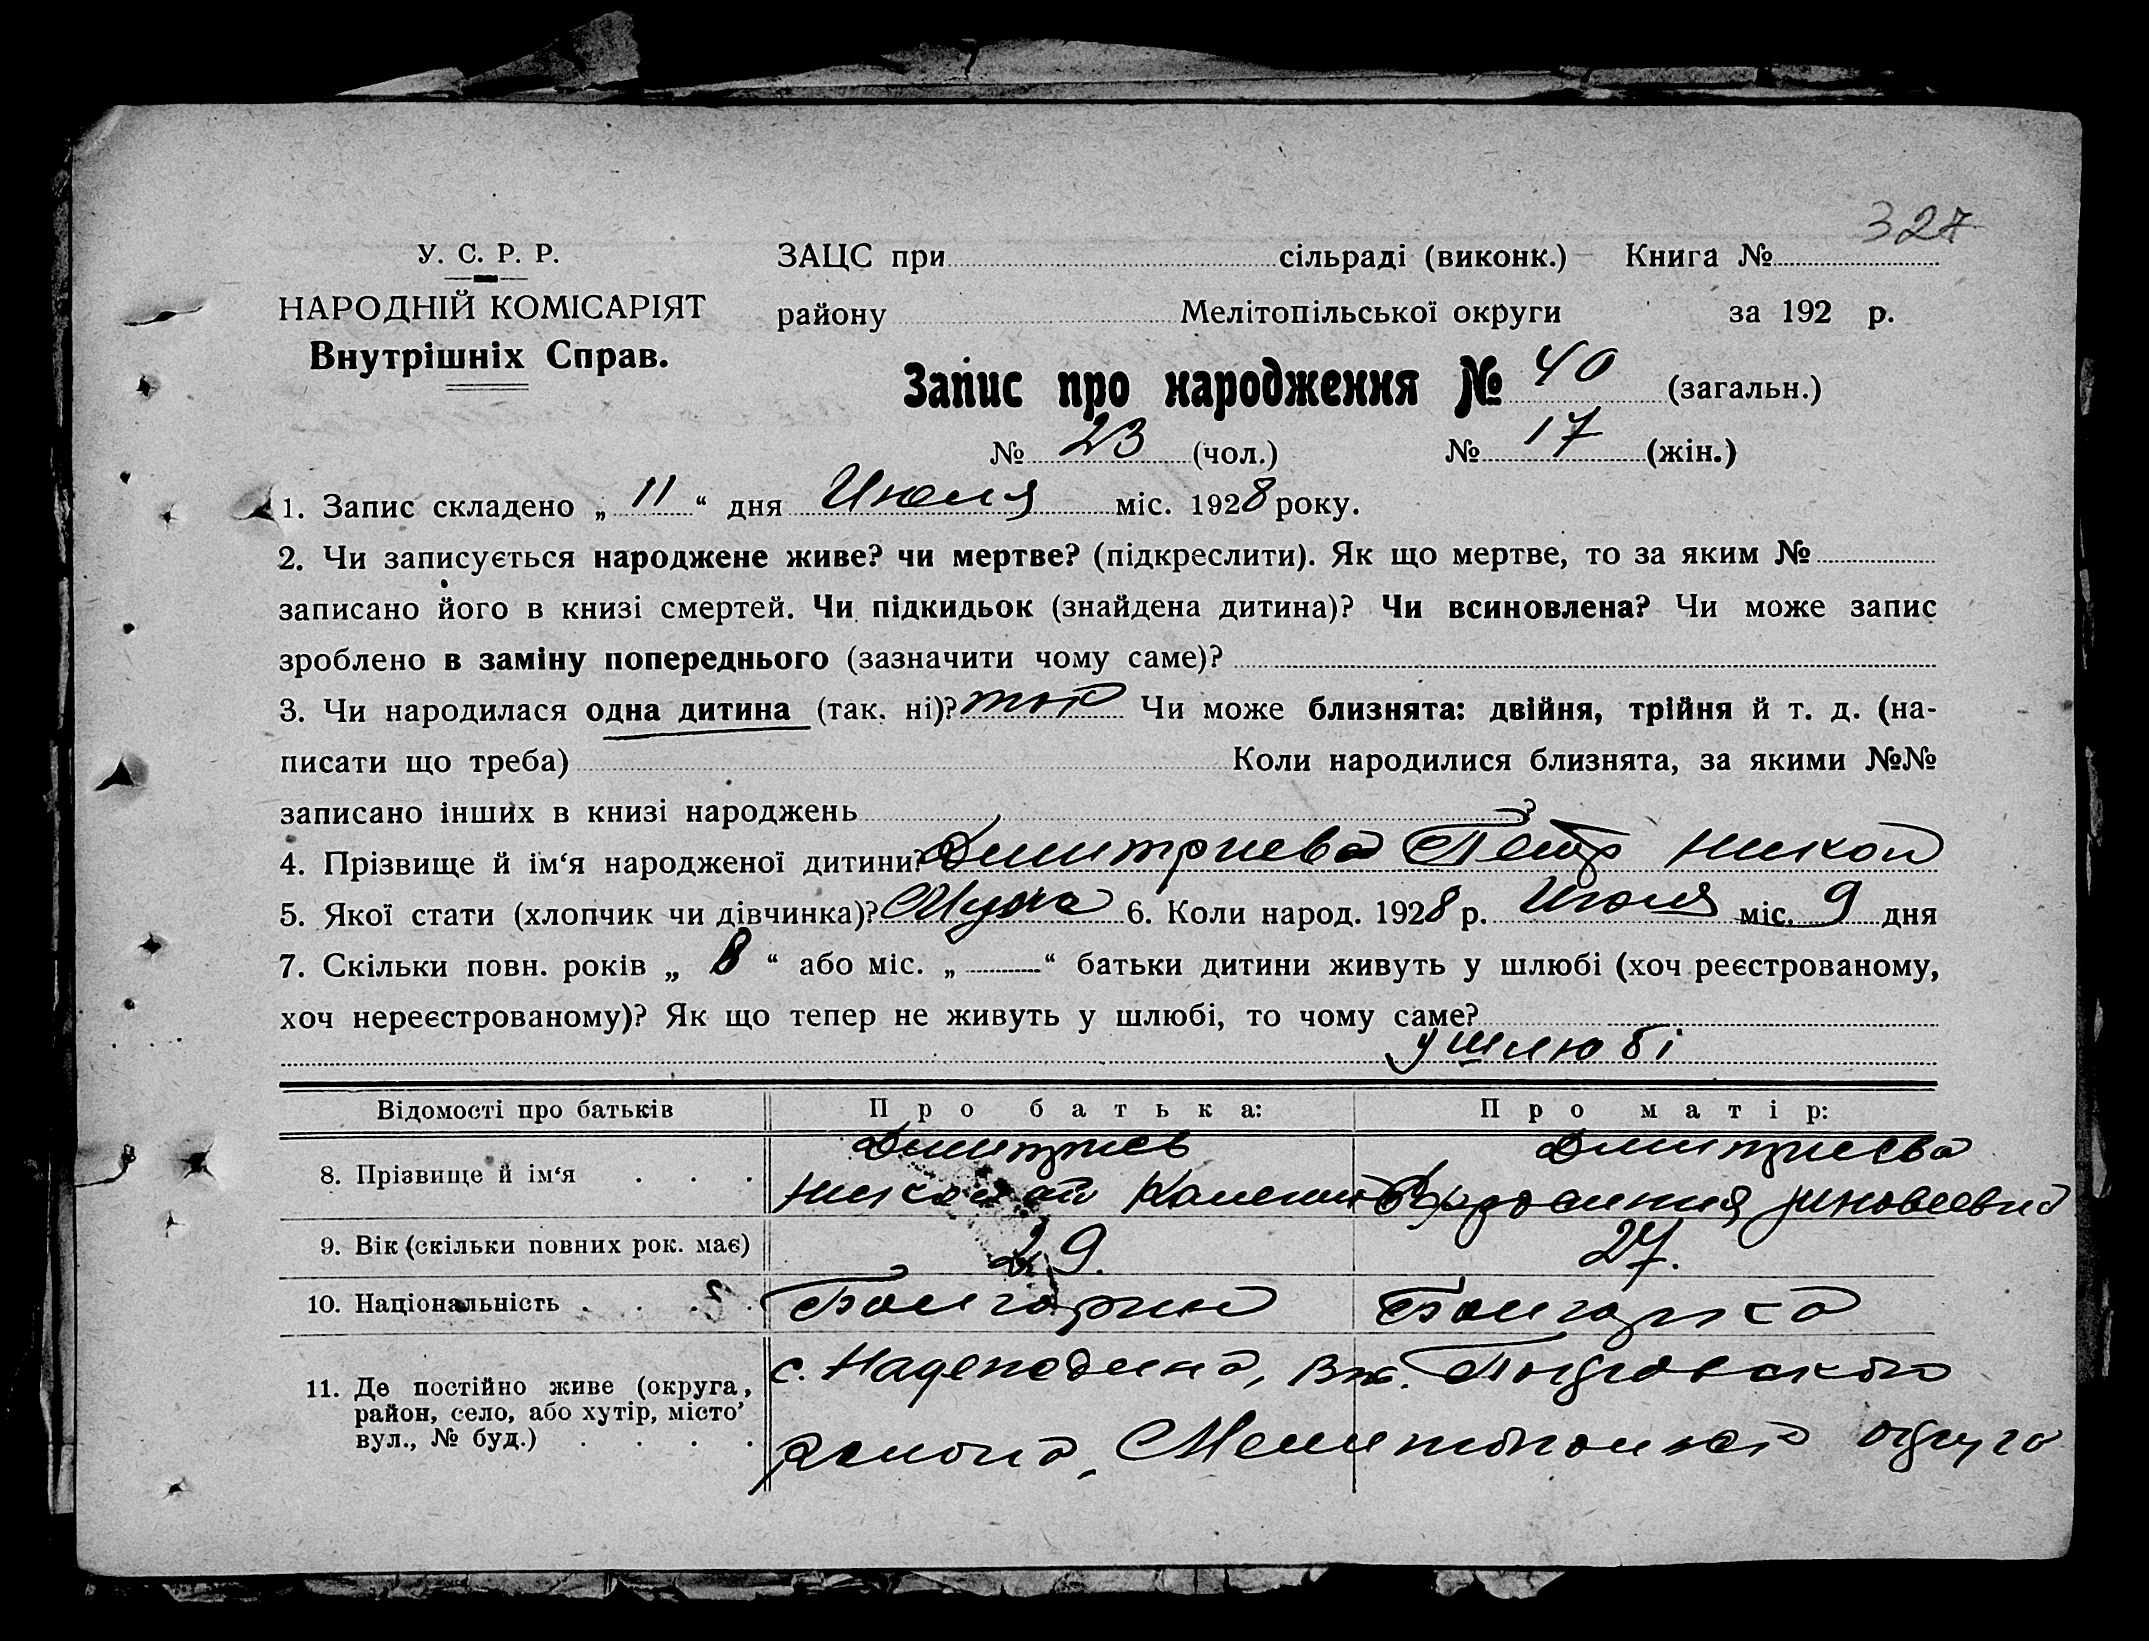 327
У. С. Р. Р.
НАРОДНІЙ КОМІСАРІЯТ
Внутрішніх Справ.
ЗАЦС при сільраді (виконк.) Книга №
району Мелітопільської округи за 192 р.
Запис про народження № 40 (загальн.)
№ 23 (чол.) № 17 (жін.)
1. Запис складено „ 11 “ дня Июля міс. 1928 року.
2. Чи записується народжене живе? чи мертве? (підкреслити). Як що мертве, то за яким №
записано його в книзі смертей. Чи підкидьок (знайдена дитина)? Чи всиновлена? Чи може запис
зроблено в заміну попереднього (зазначити чому саме)?
3. Чи народилася одна дитина (так. ні)? так Чи може близнята: двійня, трійня й т. д. (на-
писати що треба) Коли народилися близнята, за якими №№
записано інших в книзі народжень ?
4. Прізвище й ім‘я народженої дитини? Дмитриева Петр Никол
5. Якої стати (хлопчик чи дівчинка)? Мужа 6. Коли народ. 1928 р. Июля міс. 9 дня
7. Скільки повн. років „ 8 “ або міс. „ “ батьки дитини живуть у шлюбі (хоч реєстрованому,
хоч нереєстрованому)? Як що тепер не живуть у шлюбі, то чому саме?
у шлюбі
Відомості про батьків Про батька: Про матір:
8. Прізвище й ім‘я . . . Дмитриев Дмитриева
Николай
9. Вік (скільки повних рок. має) 29. 27.
10. Національність . . . . Болгарин Болгарка
11. Де постійно живе (округа,
район, село, або хутір, місто’
вул., № буд.) . . . .
с.
района, округа